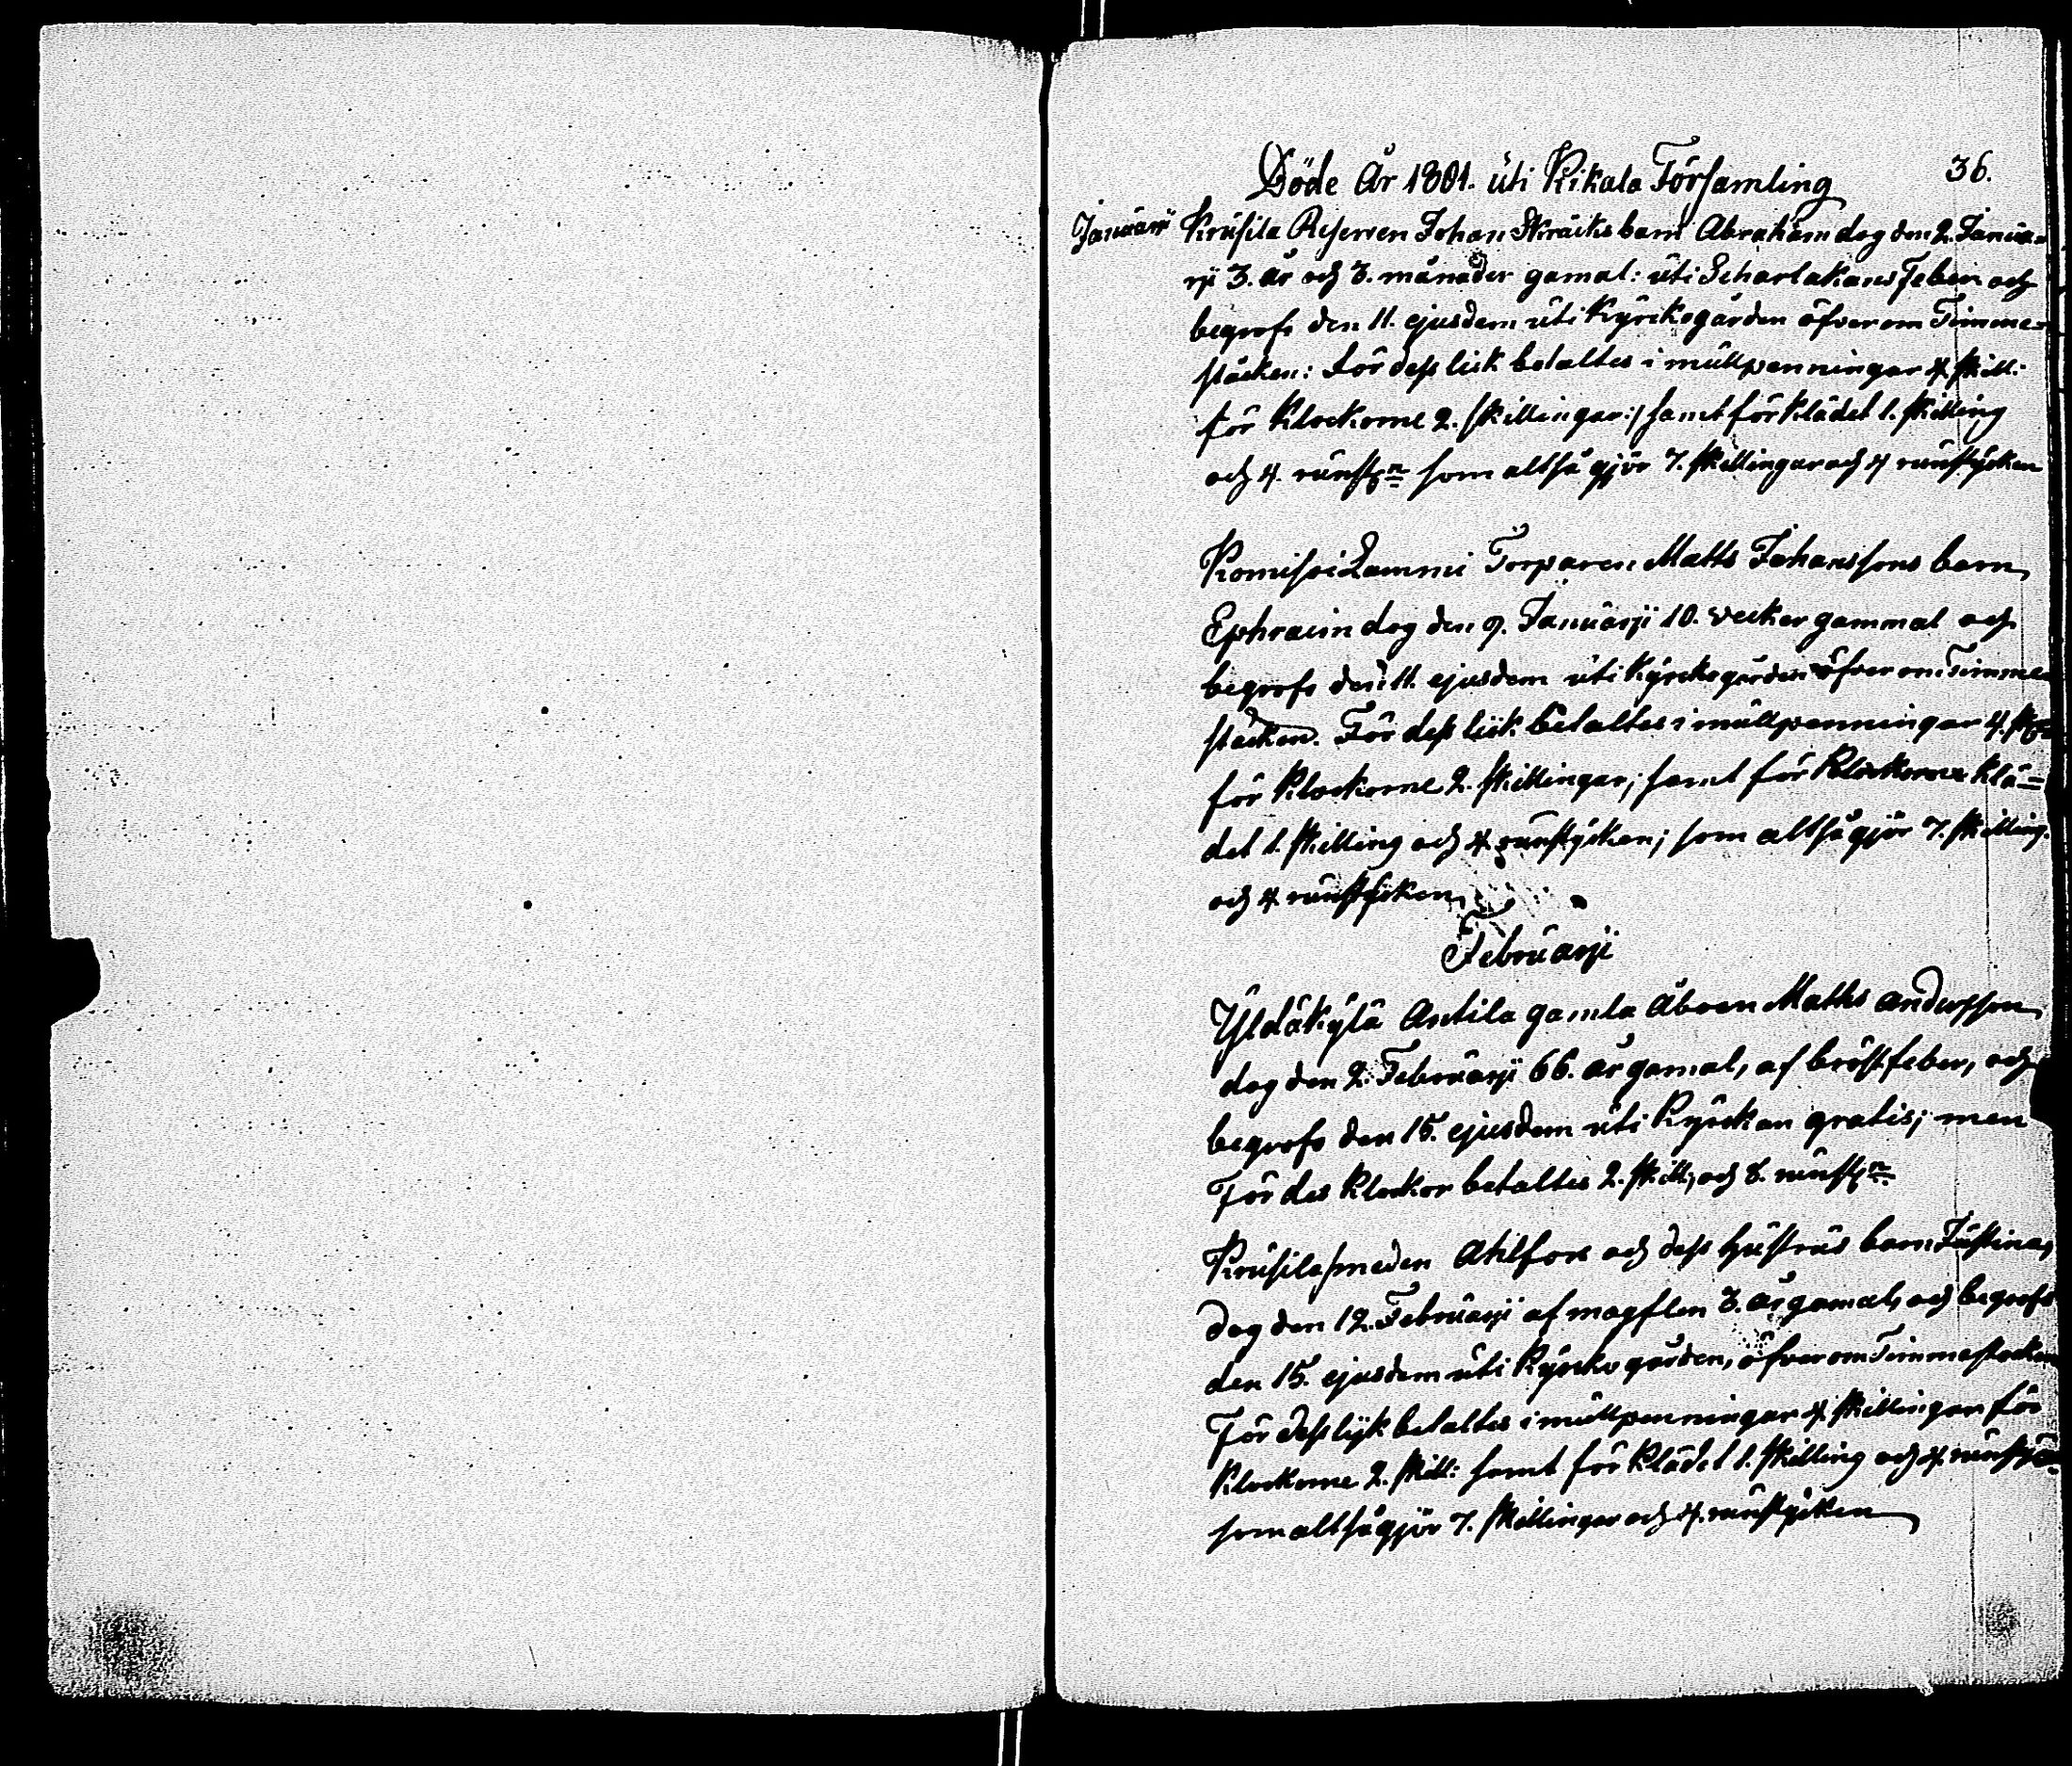 Döde År 1801. uti Kikala Församling
36.
Januarii Krusila Reserven Johan Skräcks barn Abraham dog den 2. Janua=
rii 3. år och 3. månader gamal: uti Scharlakans feber och
begrofs den 11. ejusdem uti Kyrckogården öfver om Timme=
stäcken: För dess liik betaltes i mullpenningar 4 skill:
för Klockorne 2. skillingar: samt för klädet 1. skilling
och 4. runstn som altså gjör 7. skillingar och 4 runstycken
Komisoi Lammi Torparen Matts Johanssons barn
Ephraim dog den 9. Januarii 10. veckor gammal och
begrofs den 11. ejusdem uti Kyrckogården öfver om Timme
stäcken. För dess liik betaltes i mullpenningar 4.
för Klockorne 2. skillingar; samt för Klockorne klä=
det 1. skilling och 4 runstycken; som altså gjör 7. skilling.
och 4 runstycken
Februarii
Yldäkylä Antila gamla Åboen Matts Andersson
dog den 2. Februarii 66. år gamal, af bröstfeber, och
begrofs den 15. ejusdem uti Kyrckan gratis; men
För des klockor betaltes 2. skill; och 8. runstn
Krusila smeden Ahlfors och dess hustrus barn Justina,
dog den 12. Februarii af magflen 3. år gamal, och begrofs
den 15. ejusdem uti Kyrcko gården, öfver om Timmestocken
För dess lijk betaltes i mullpenningar 4 skillingar för
Klockorne 2. skill: samt för klädet 1. skilling och 4.
som altså gjör 7. skillingar och 4. runstycken